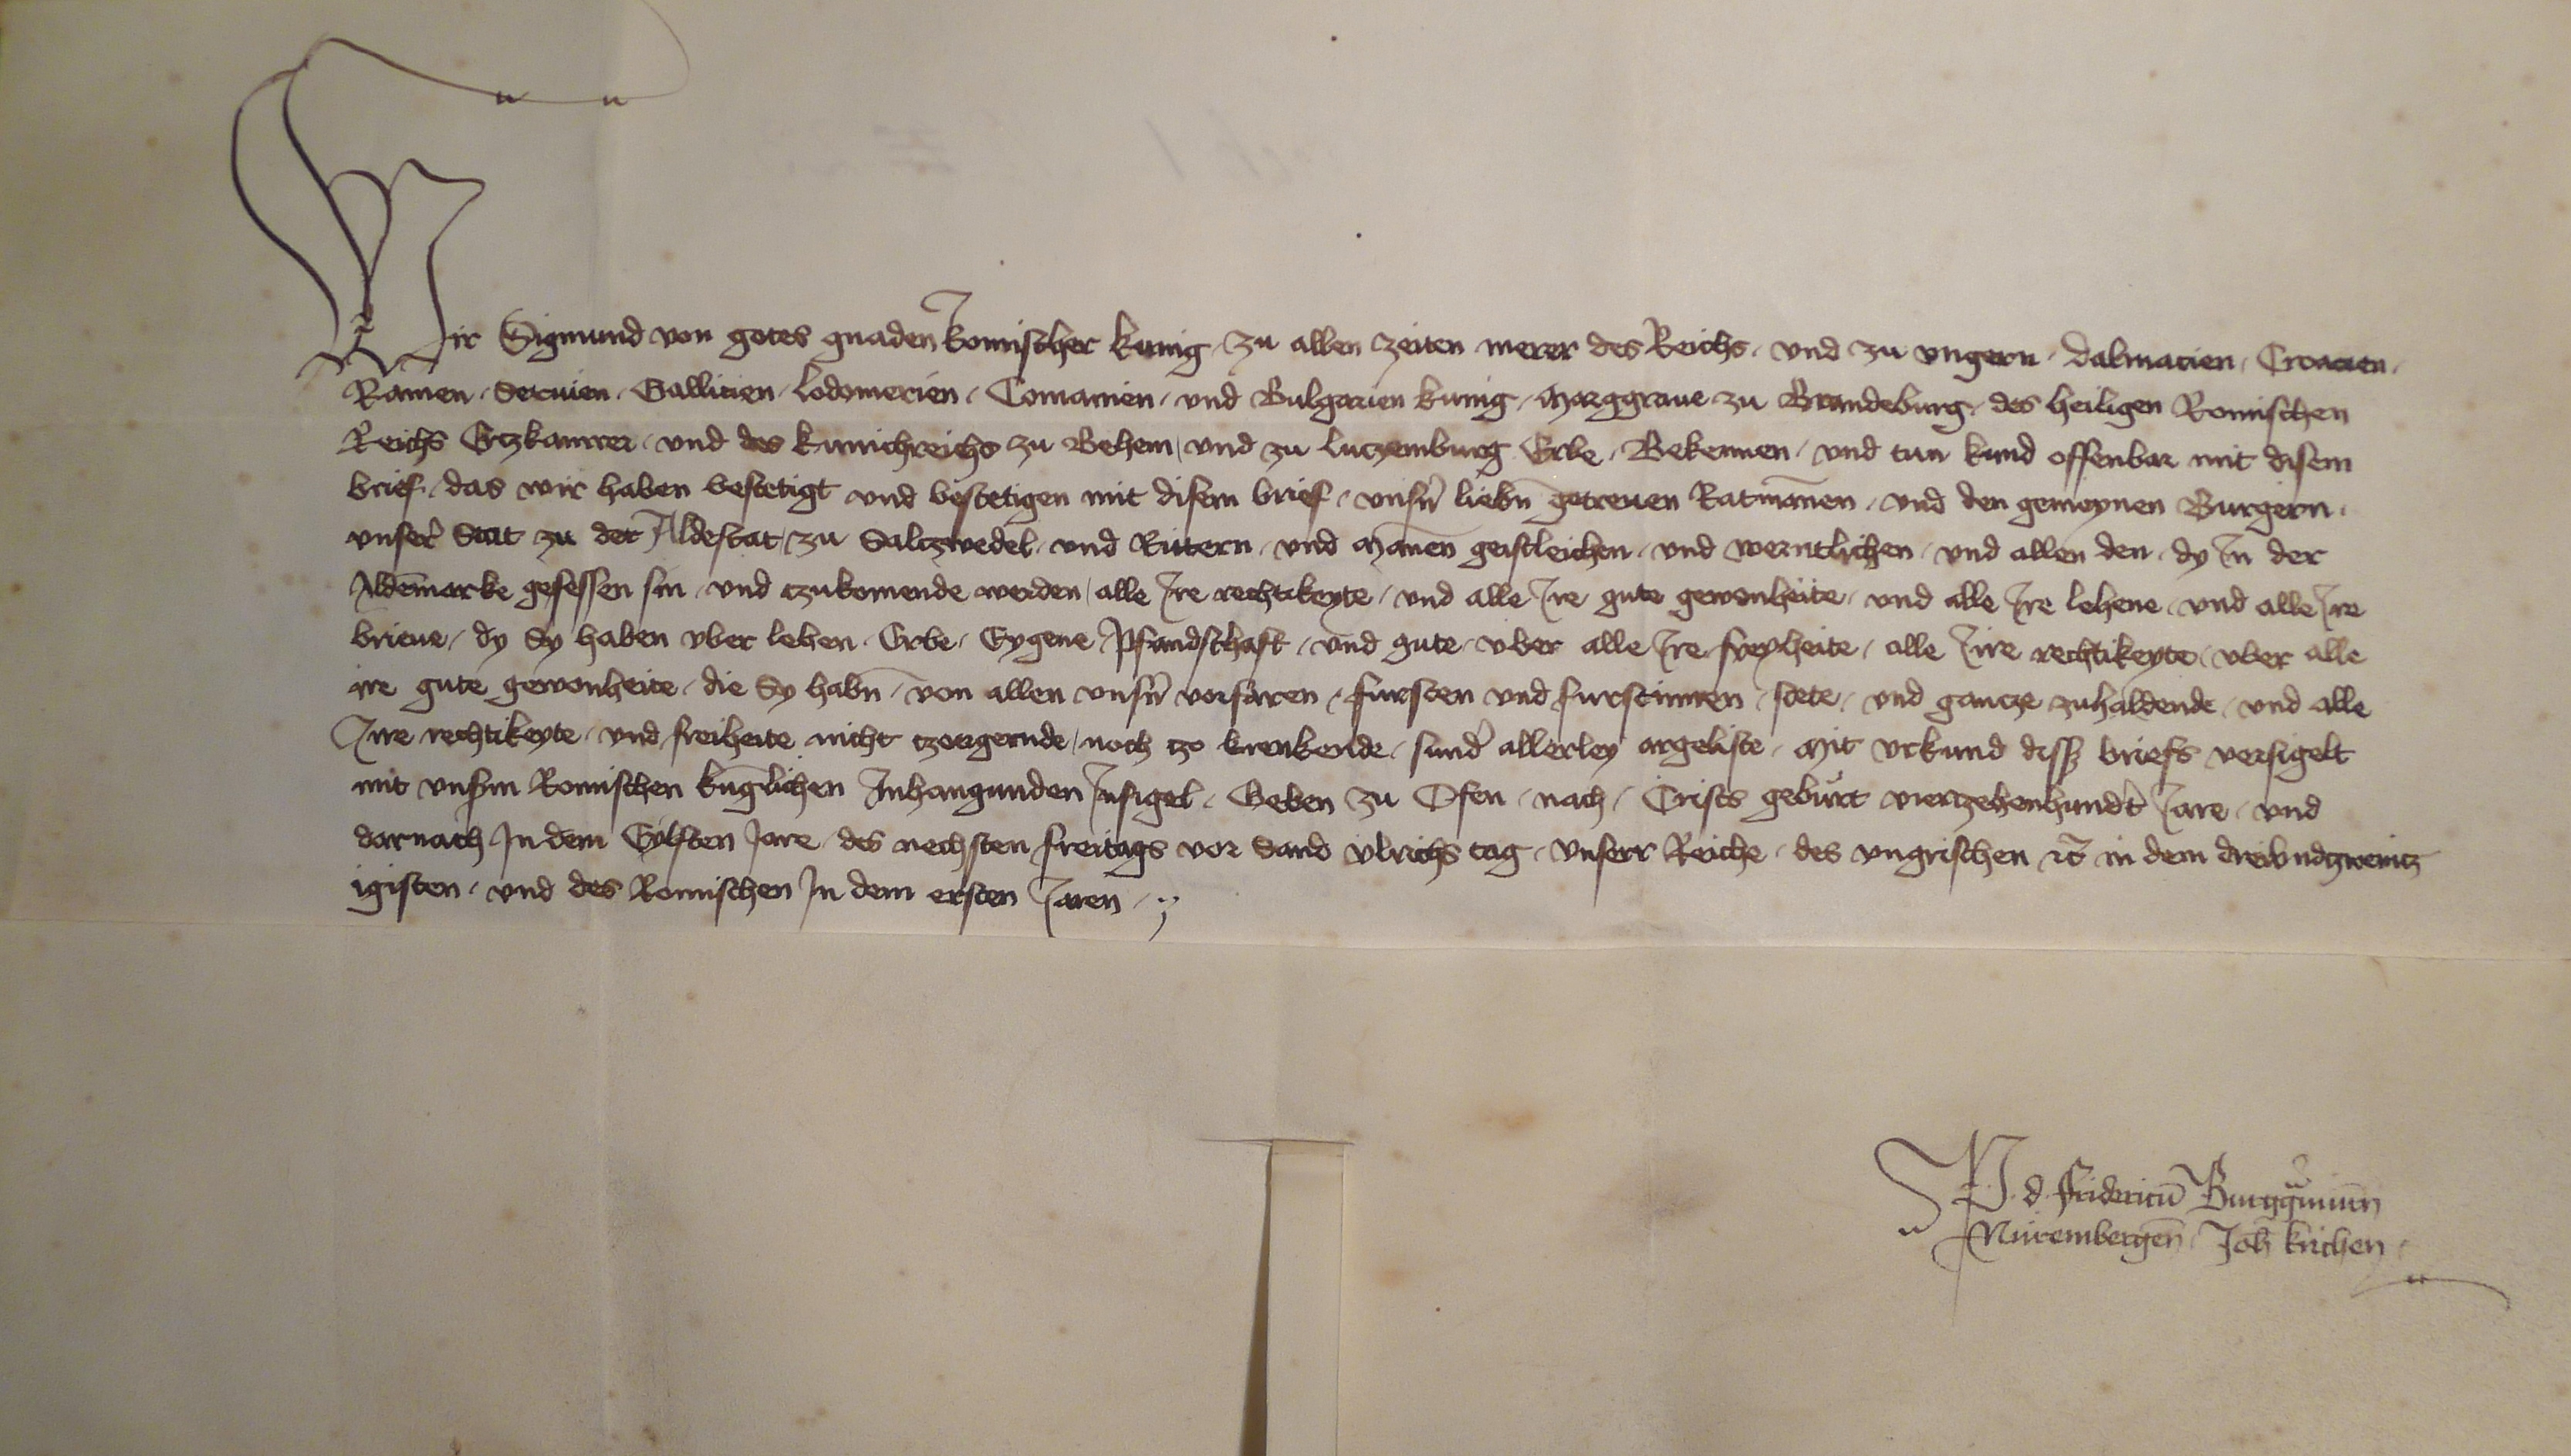 Wir Sigmund von gotes gnaden Romischer kunig zu allen zeiten merer des Reichs und zu vngern Dalmacien Croacien
Ramen Seruien Gallicien Lodomerien Comanien und Bulgarien kunig Marggraue zu Brandeburg des heiligen Romischen
Reichs Ertzkamrer und des kunichreichs zu Behem und zu Luczemburg Erbe Bekennen und tun kund offenbar mit disem
brief das wir haben bestetigt und bestetigen mit disem brief vnsn̄ liebn̄ getreuen Ratmānen und den gemeynen Burgern
vnser Stat zu der Aldestat zu Saltzwedel und Rittern und Mannen geistleichen und werntlichen und allen den dy In der
Aldēmarke gesessen sin und tzukomende werden alle Ire rechtikeyte und alle Ire gute gewonheite und alle Ire lehene und alle Ire
brieue dy Sy haben vber lehen Erbe Eygene Pfandschaft und gute vber alle Ire freyheite alle Iire rechtikeyte vber alle
ire gute gewonheite die Sy habn̄ von allen vnsn̄ vorfaren fursten und furstinnen stete und gancze zuhaldende und alle
Iire rechtikeyte und freiheite nicht tzoergernde noch tzo krenkende sunder allerley argeliste Mit vrkund diss briefs versigelt
mit vnsm Romischen kunglichen Inhangunden Insigel Geben zu Ofen nach Crists geburt viertzehenhundert Iare und
darnach In dem Eylften Jare des nechsten freitags vor Sand Vlrichs tag Vnserr Reiche des vngrischen ⁊c̄ in dem dreivndtzwentz
igisten und des Romischen In dem ersten Iaren
P. d. Fridericū Burggrauiū
Nurembergen̄ Joh̄ kirchen